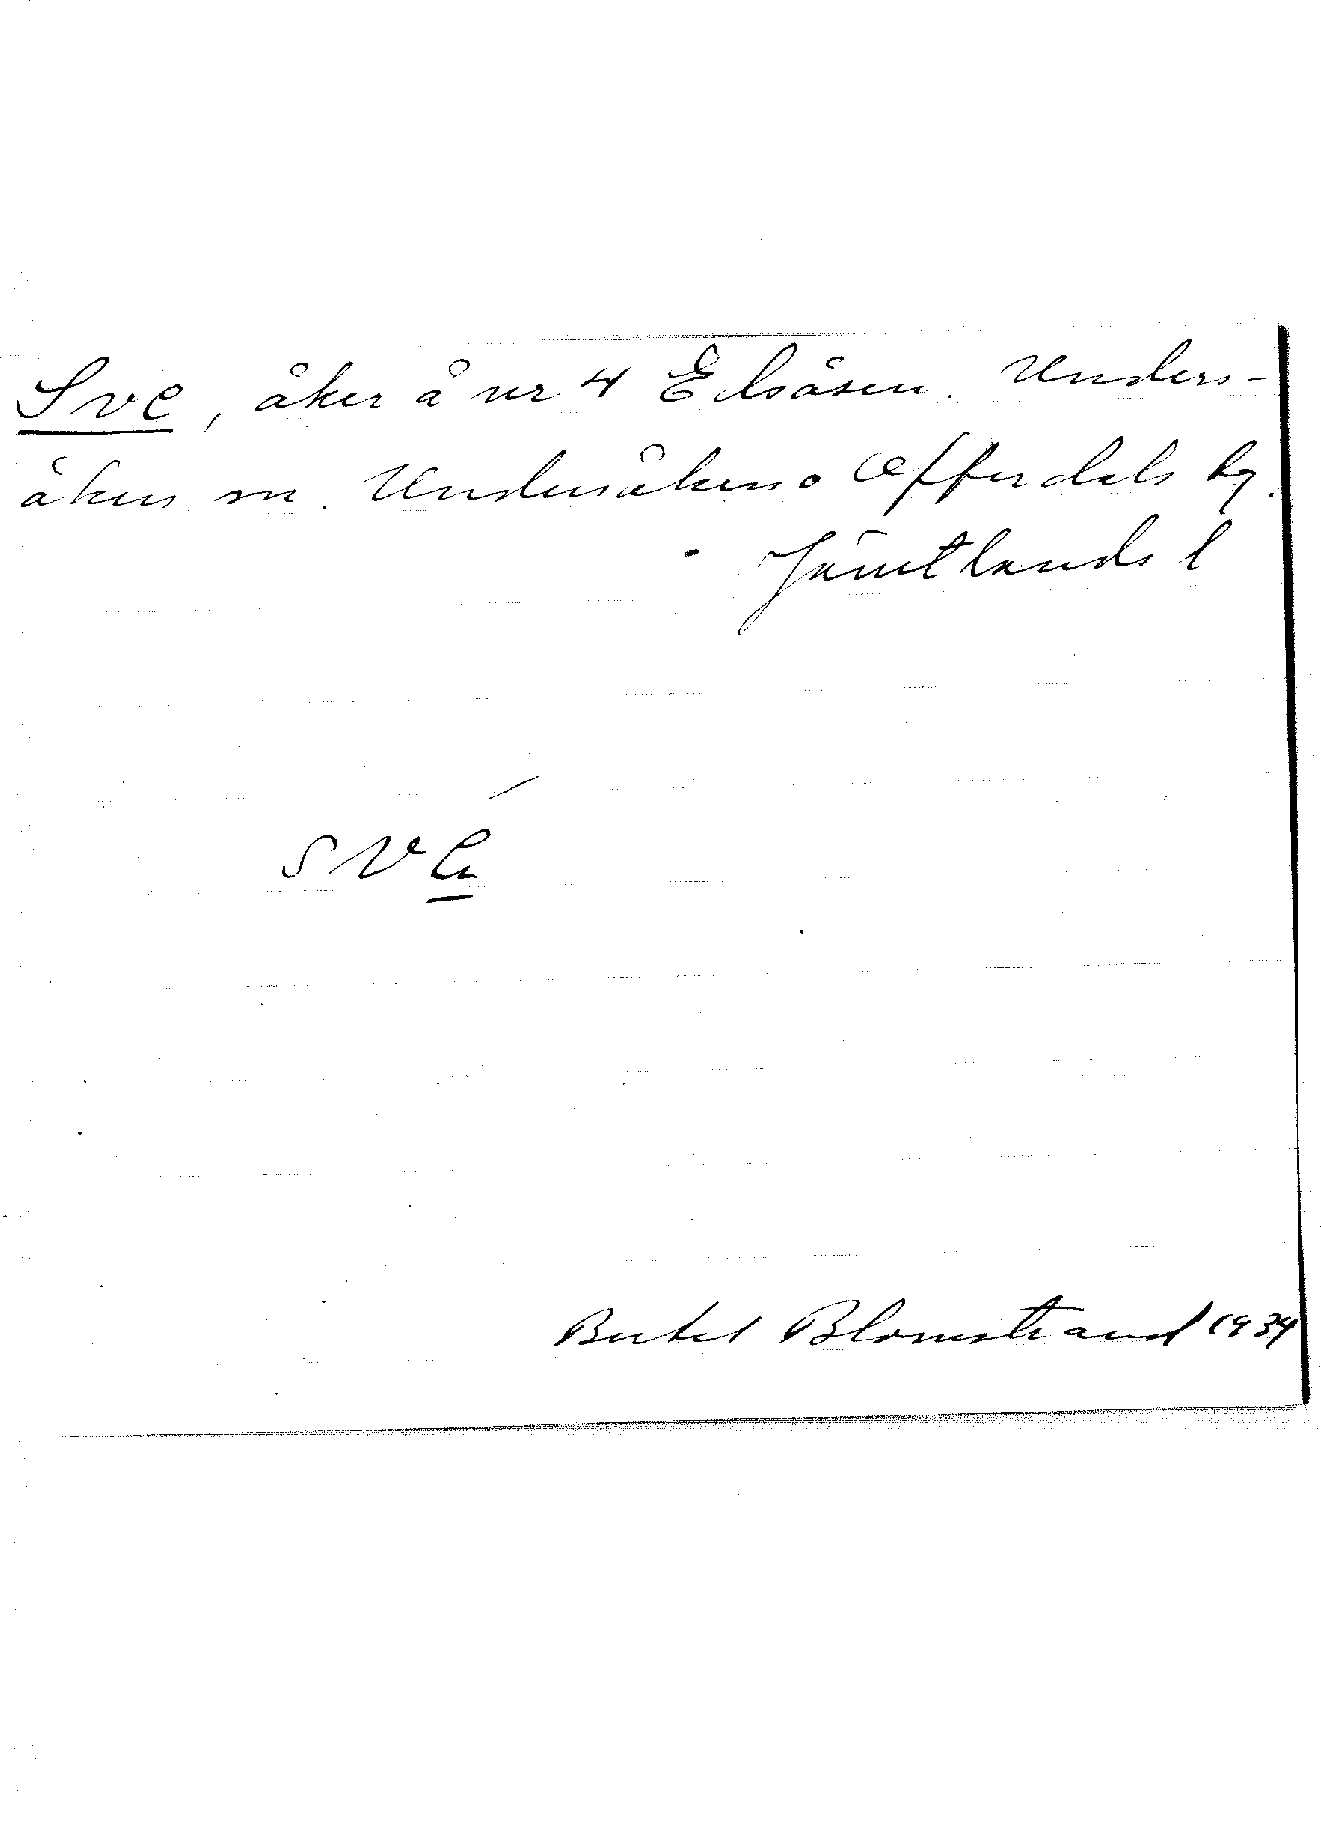 Sve, åker å nr 4 Edsåsen. Unders-
åkers sn. Undersåkers o Offerdals tg.
Jämtlands l
Bertel Blomstrand 1934